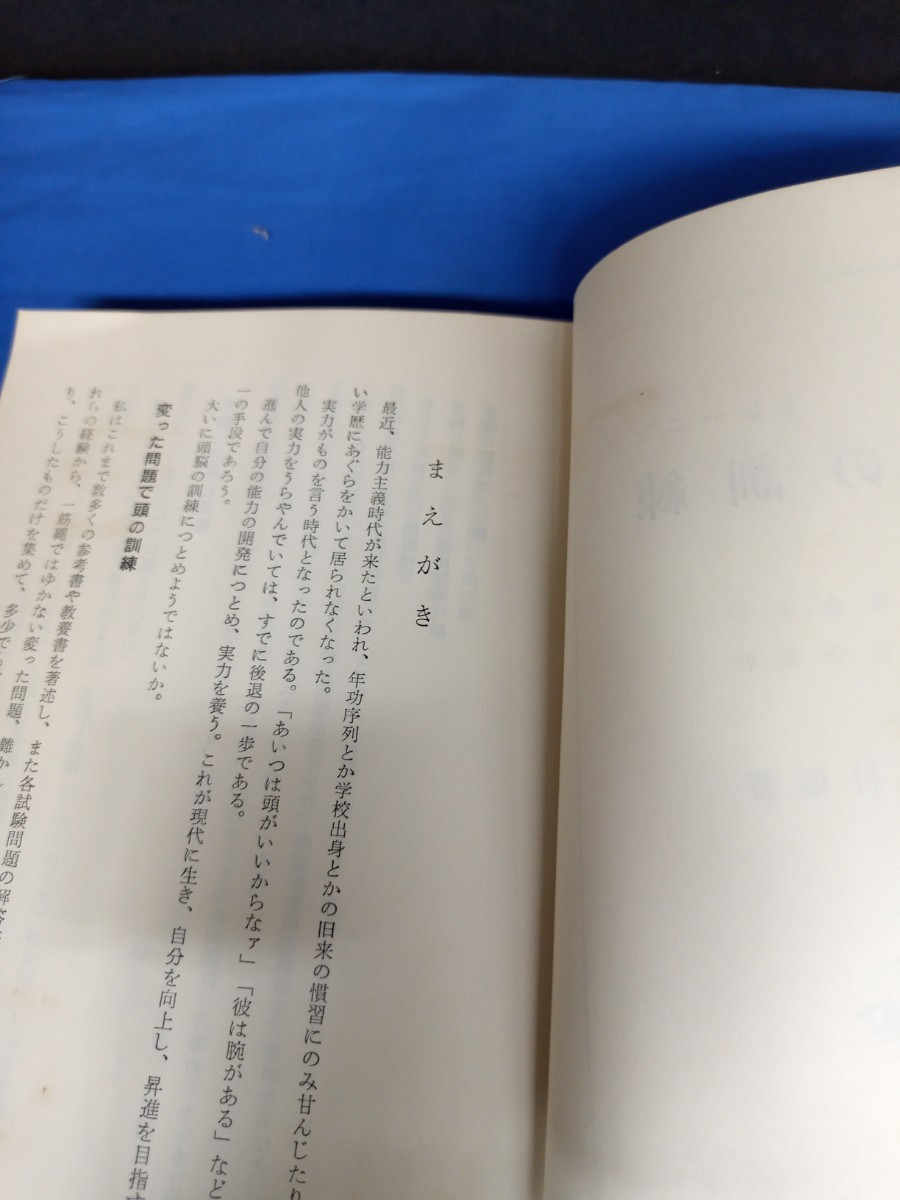 まえがき
最近、能力主義時代が来たといわれ、年功序列とか学校出身とかの旧来の慣習にのみ甘んじたり
い学歴にあぐらをかいて居られなくなった。
実力がものを言う時代となったのである。「あいつは頭がいいからなァ」「彼は腕がある」など
他人の実力をうらやんでいては、すでに後退の一歩である。
進んで自分の能力の開発につとめ、実力を養う。これが現代に生き、自分を向上し、昇進を目指す
一の手段であろう。
大いに頭脳の訓練につとめようではないか。
変った問題で頭の訓練
私はこれまで数多くの参考書や教養書を著述し、また各試験問題の解答
れらの経験から、一筋縄ではゆかない変った問題、難か
り、こうしたものだけを集めて、多少で
の訓練